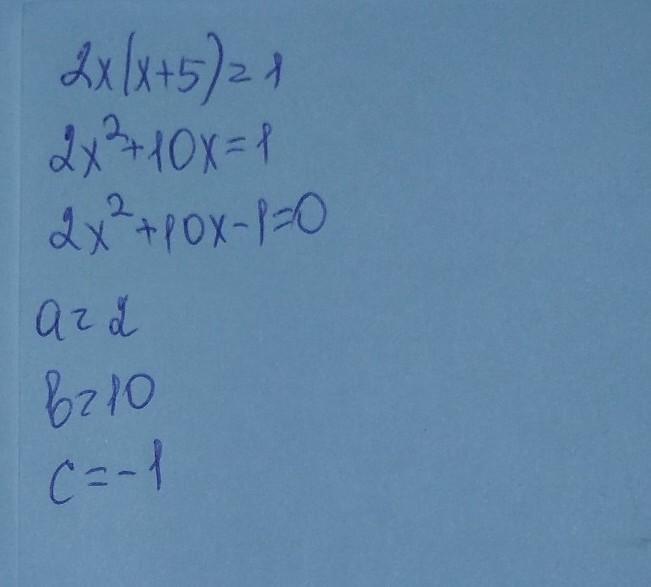 2x(x+5)=1
2x²+10x=1
2x²+10x-1=0
a=2
b=10
c=-1